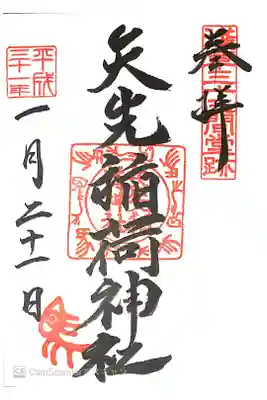 奉拝
矢先稲荷神社
平成
三十一年
一月二十一日
CamScanner